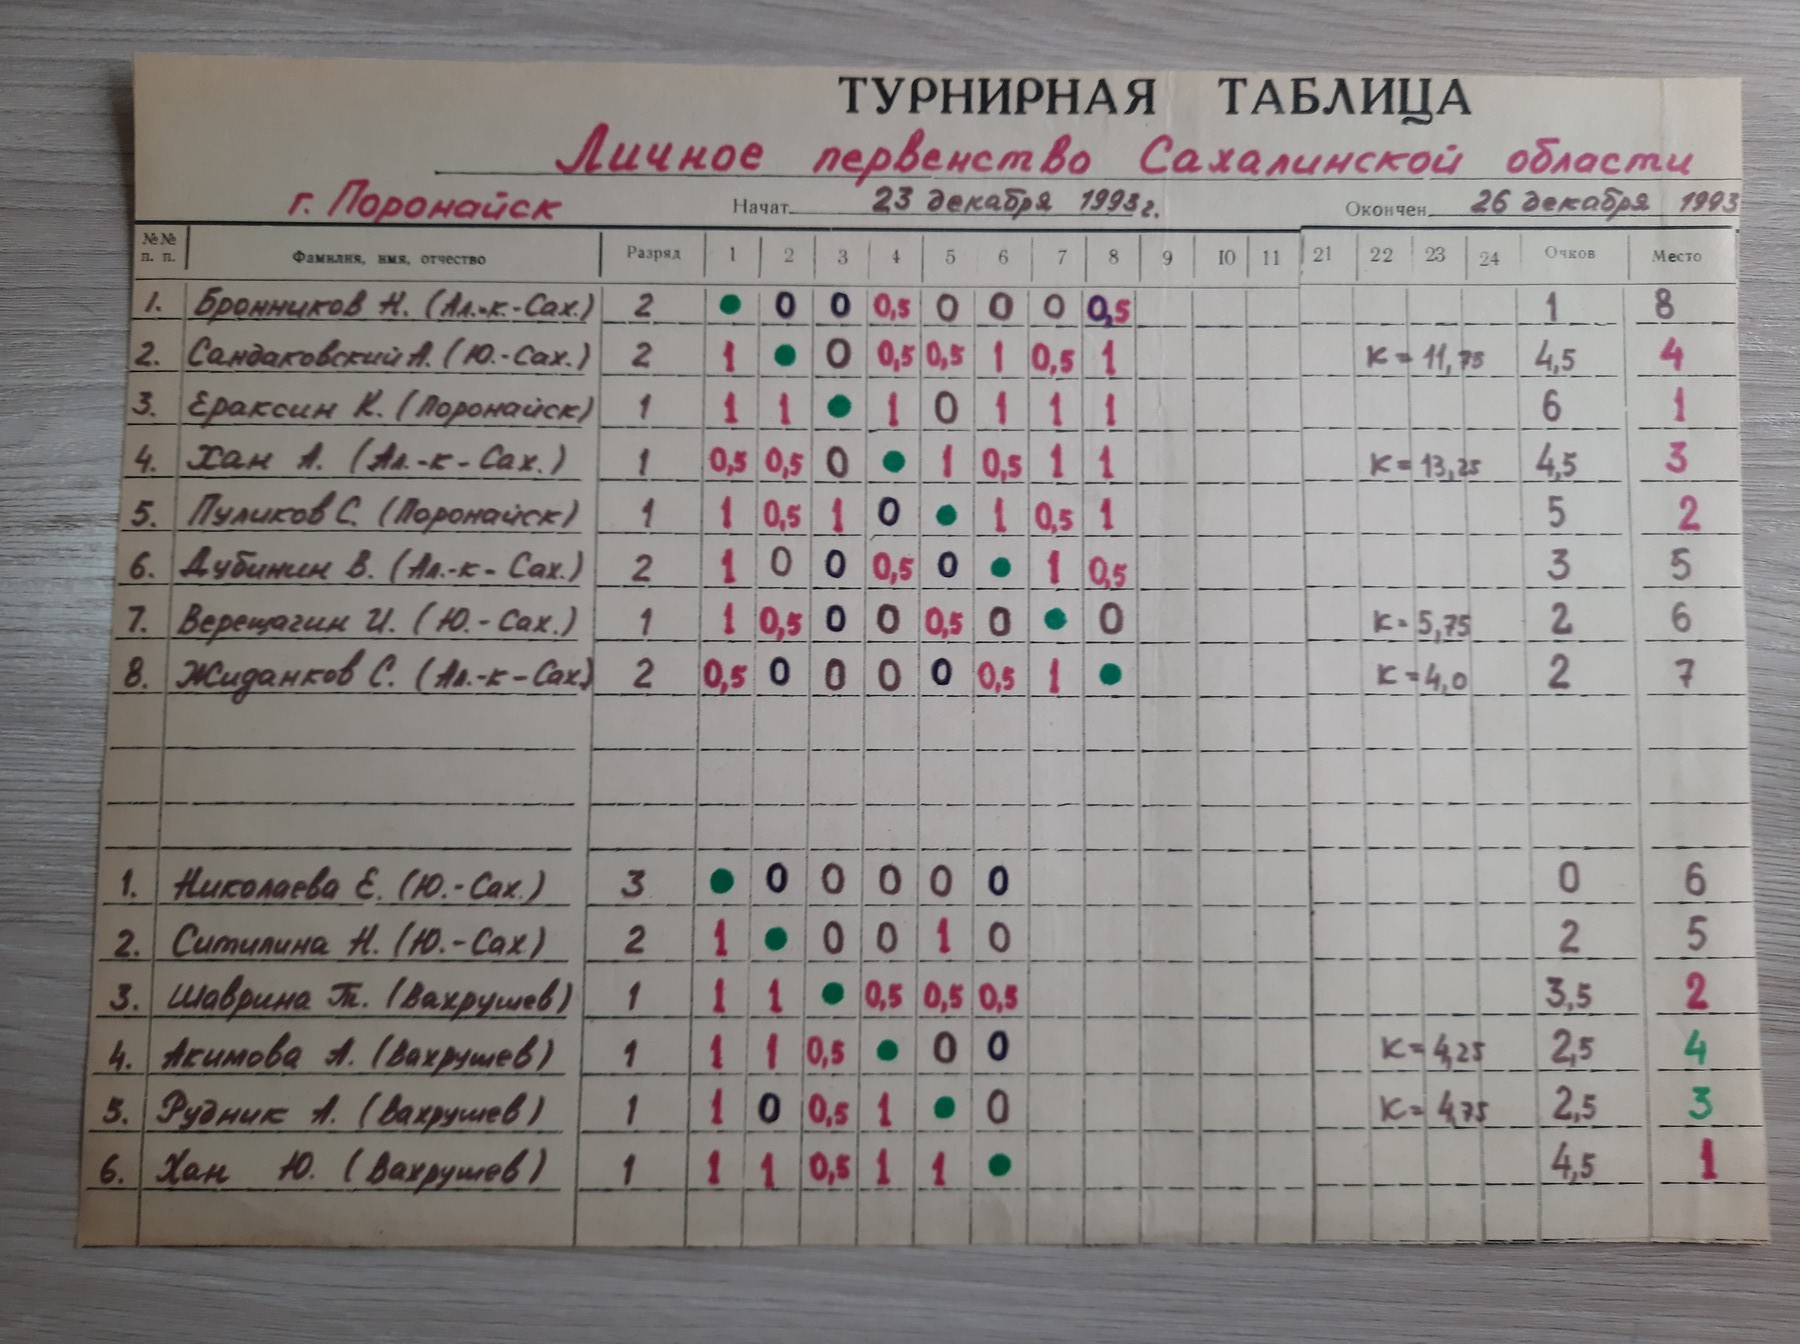 ТУРНИРНАЯ ТАБЛИЦА
Личное первенство Сахалинской области
г. Поронайск Начат 23 декабря 1993 г. Окончен 26 декабря 1993
№№ п. п. Фамилия, имя, отчество Разряд 1 2 3 4 5 6 7 8 9 10 11 21 22 23 24 Очков Место
1. Бронников Н. (Ал.-к.-Сах.) 2 ● 0 0 0,5 0 0 0 0,5 1 8
2. Сандаковский А. (Ю.-Сах.) 2 1 ● 0 0,5 0,5 1 0,5 1 К = 11,75 4,5 4
3. Ераксин К. (Поронайск) 1 1 1 ● 1 0 1 1 1 6 1
4. Хан А. (Ал.-к-Сах.) 1 0,5 0,5 0 ● 1 0,5 1 1 К = 13,25 4,5 3
5. Пуликов С. (Поронайск) 1 1 0,5 1 0 ● 1 0,5 1 5 2
6. Дубинин В. (Ал.-к-Сах.) 2 1 0 0 0,5 0 ● 1 0,5 3 5
7. Верещагин И. (Ю.-Сах.) 1 1 0,5 0 0 0,5 0 ● 0 К = 5,75 2 6
8. Жиданков С. (Ал.-к-Сах.) 2 0,5 0 0 0 0 0,5 1 ● К = 4,0 2 7
1. Николаева Е. (Ю.-Сах.) 3 ● 0 0 0 0 0 0 6
2. Ситилина Н. (Ю.-Сах) 2 1 ● 0 0 1 0 2 5
3. Шаврина Т. (Вахрушев) 1 1 1 ● 0,5 0,5 0,5 3,5 2
4. Акимова А. (Вахрушев) 1 1 1 0,5 ● 0 0 К = 4,25 2,5 4
5. Рудник А. (Вахрушев) 1 1 0 0,5 1 ● 0 К = 4,75 2,5 3
6. Хан Ю. (Вахрушев) 1 1 1 0,5 1 1 ● 4,5 1